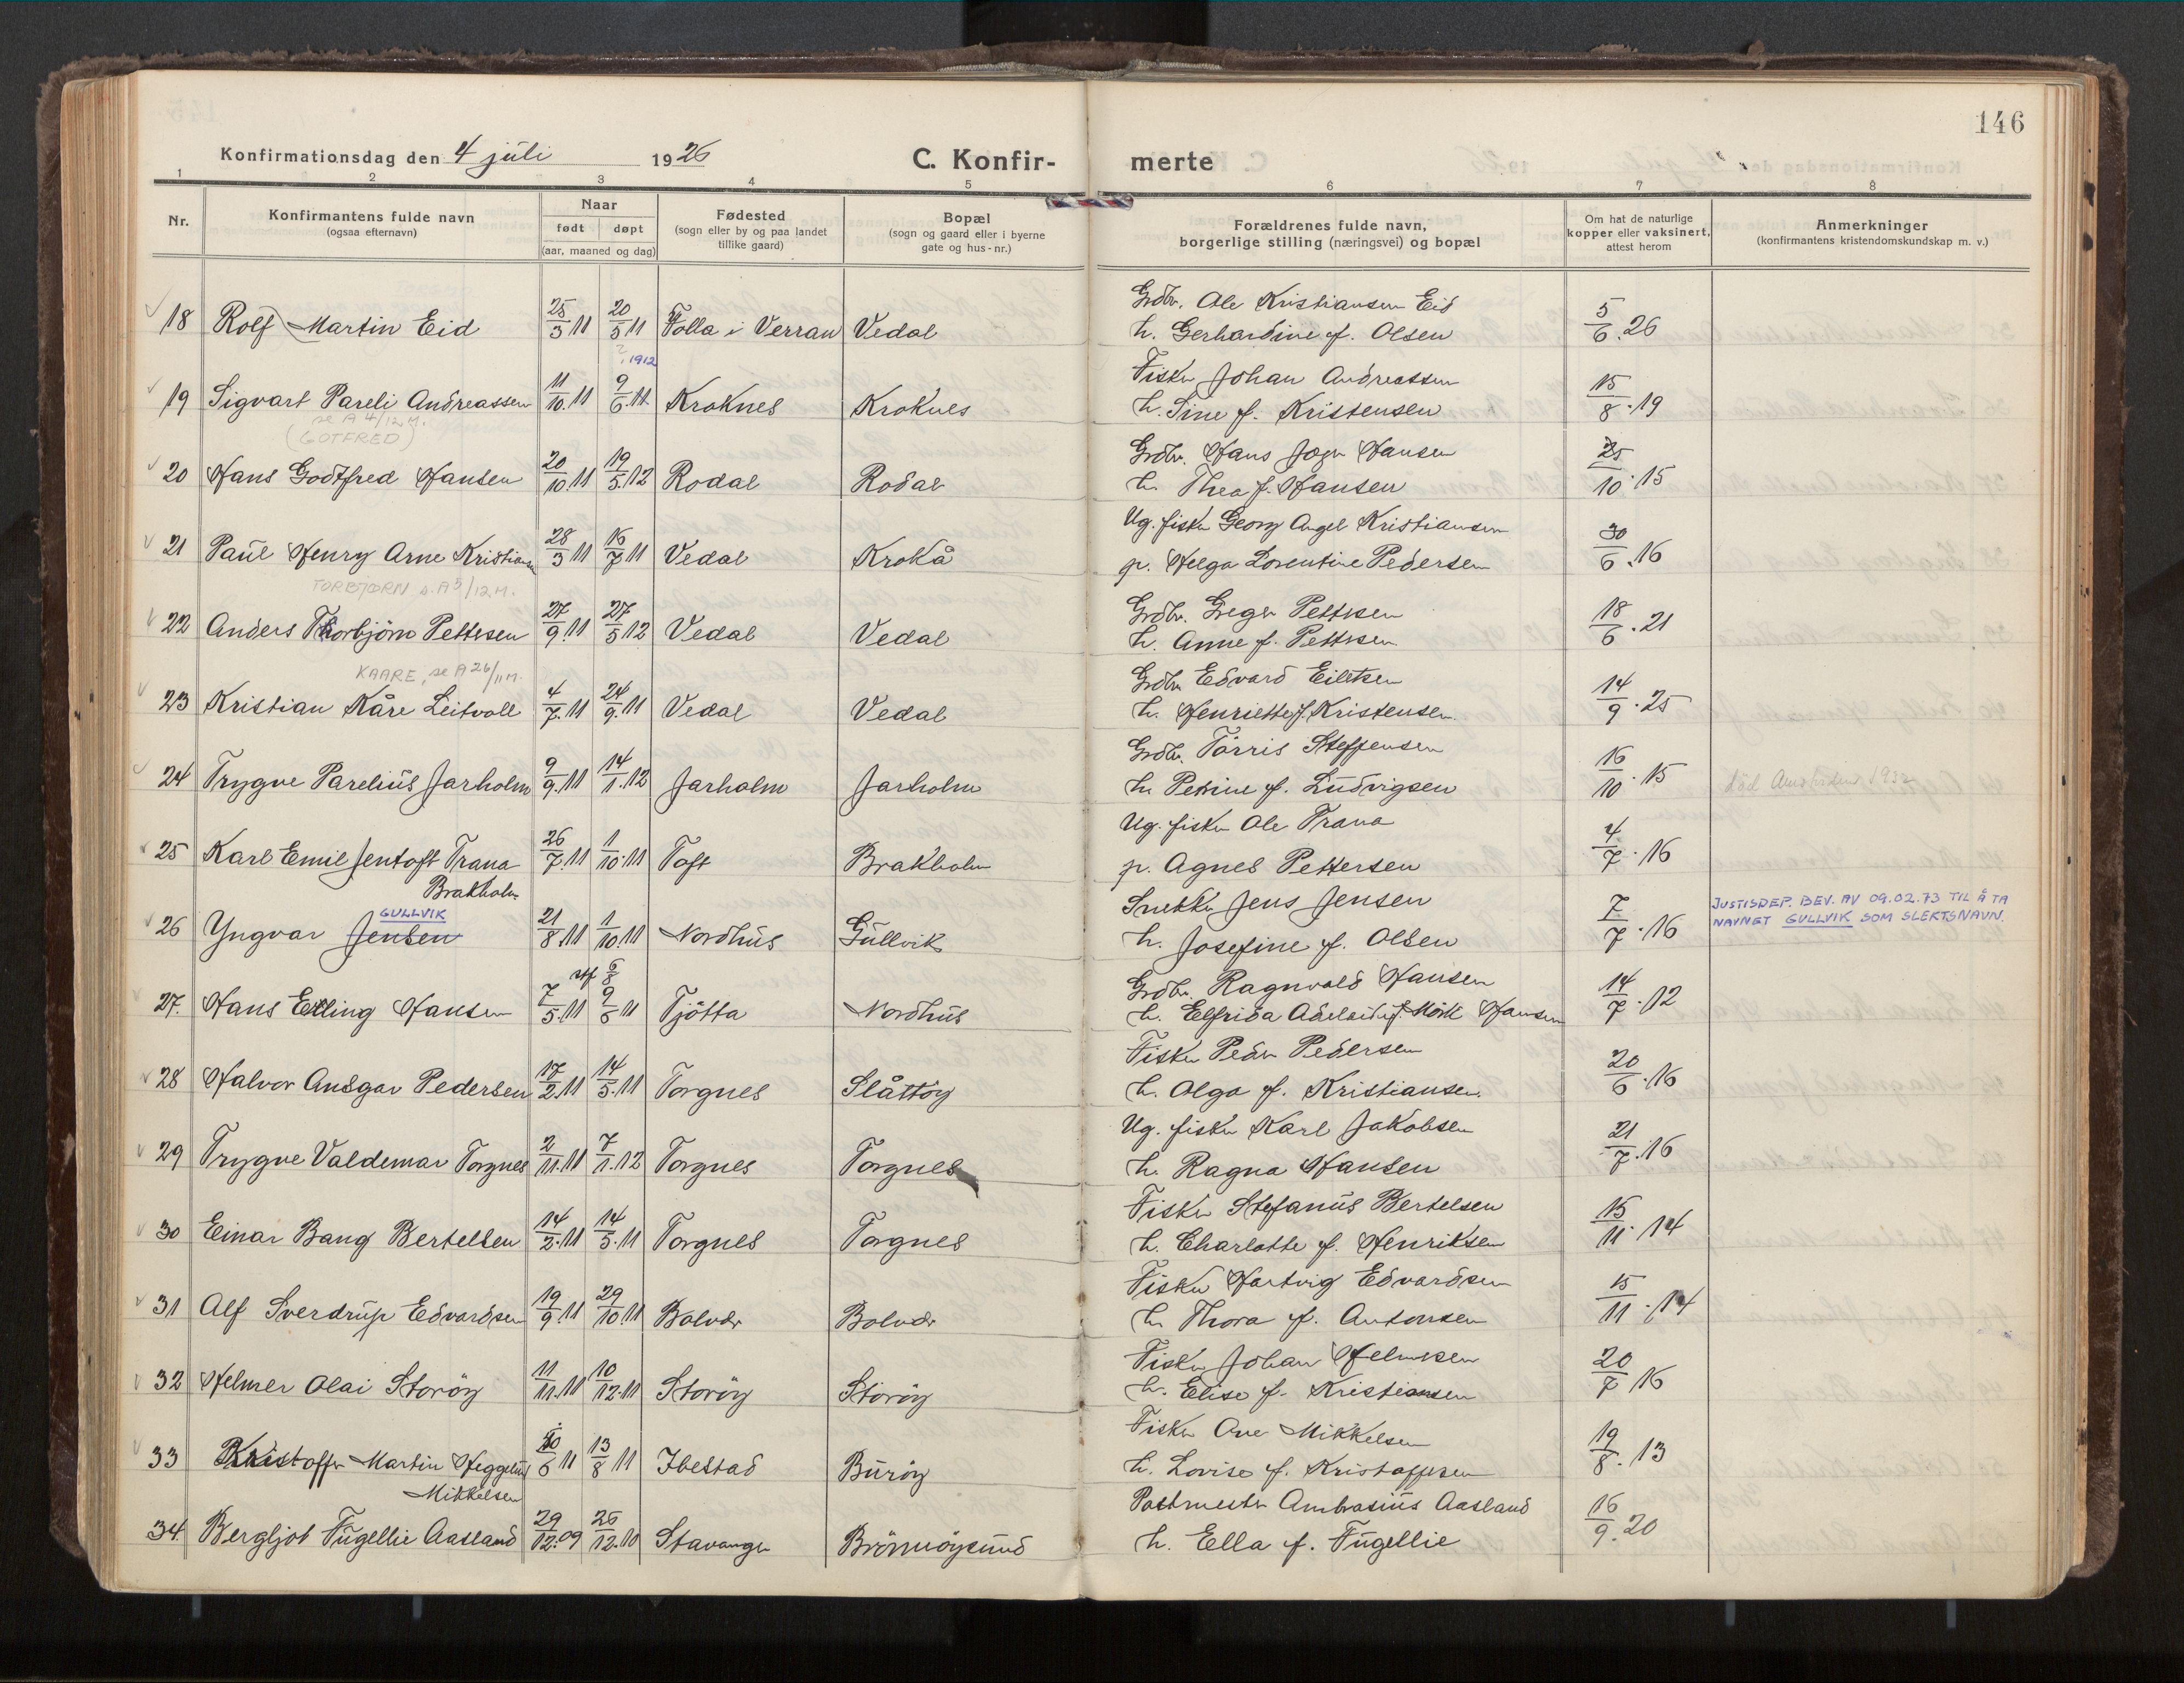 146
Konfirmationsdag den 4 juli 1926
C. Konfir-
merte
1 2 3 4 5 6 7 8
Nr.
Konfirmantens fulde navn
(ogsaa efternavn)
Naar
født døpt
(aar, maaned og dag)
Fødested
(sogn eller by og paa landet
tillike gaard)
Bopæl
(sogn og gaard eller i byerne
gate og hus-nr.)
Forældrenes fulde navn,
borgerlige stilling (næringsvei) og bopæl
Om hat de naturlige
kopper eller vaksinert,
attest herom
Anmerkninger
(konfirmantens kristendomskundskap m. v.)
Grdbr. Ole Kristiansen Eid
18 Rolf Martin Eid 25/3 11 20/5 11 Folla i Verran Vedal h. Gerhardine f. Olsen 5/6.26
1912
Fisker Johan Andreassen
19 Sigvart Pareli Andreassen 11/10.11 9/6.11 Kroknes Kroknes h. Sine f. Kristensen 15/8.19
se A 4/12 M.
(GOTFRED)
Grdbr. Hans Joger Hansen
20 Hans Godtfred Hansen 20/10.11 19/5.12 Rodal Rodal h. Thea f. Hansen 25/10.15
Ug. fisker Georg Angel Kristiansen
21 Paul Henry Arne Kristiansen 28/3 11 16/7 11 Vedal Krokå p. Helga Lorentine Pedersen 30/6.16
TORBJØRN s. A 5/12 M.
Grdbr. Greger Pettersen
22 Anders Thorbjörn Pettersen 27/9.11 27/5 12 Vedal Vedal h. Anne f. Pettersen 18/6.21
KAARE, se A 26/11 M.
Grdbr. Edvard Eilertsen
23 Kristian Kåre Leitvoll 4/7.11 24/9.11 Vedal Vedal h. Henriette f. Kristensen 14/9.25
Grdbr. Törris Steffensen
24 Trygve Parelius Jarholm 9/9.11 14/1.12 Jarholm Jarholm h. Petrine f. Ludvigsen 16/10.15
Ug. fisker Ole Trana
25 Karl Emil Jentoft Trana 26/7.11 1/10.11 Toft Brakholm p. Agnes Pettersen 4/7.16
Brakholm
Snekker Jens Jensen
GULLVIK
26 Yngvar Jensen 21/8.11 1/10.11 Nordhus Gullvik h. Josefine f. Olsen 7/7.16
JUSTISDEP. BEV. AV 09.02.73 TIL Å TA
NAVNET GULLVIK SOM SLEKTSNAVN.
Grdbr. Ragnvald Hansen
27. Hans Erling Hansen 7/5.11 9/6 11 Tjötta Nordhus h. Elfrida Adelaide f. Mörk Hansen 14/7.12
Fisker Peder Pedersen
28 Halvor Ansgar Pedersen 17/2.11 14/5.11 Torgnes Slåttöy h. Olga f. Kristiansen. 20/6.16
Ug. fisker Karl Jakobsen
29 Trygve Valdemar Torgnes 2/11.11 7/1.12 Torgnes Torgnes h. Ragna Hansen 21/7.16
Fisker Stefanus Bertelsen
30 Einar Bang Bertelsen 14/2.11 14/5.11 Torgnes Torgnes h. Charlotte f. Henriksen 15/11.14
Fisker Hartvig Edvardsen
31 Alf Sverdrup Edvardsen 19/9.11 29/10.11 Bolvær Bolvær h. Thora f. Antonsen 15/11.14
Fisker Johan Helmersen
32 Helmer Olai Storöy 11/11.11 10/12.11 Storöy Storöy h. Elise f. Kristiansen 20/7 16
Fisker Ove Mikkelsen
33 Kristoffer Martin Heggelund 10/6 11 13/8 11 Ibestad Buröy h. Lovise f. Kristoffersen 19/8.13
Mikkelsen
Postmester Ambrosius Aasland
34. Bergljot Fugellie Aasland 29/12.09 26/12.10 Stavanger Brönnöysund h. Ella f. Fugellie 16/9.20